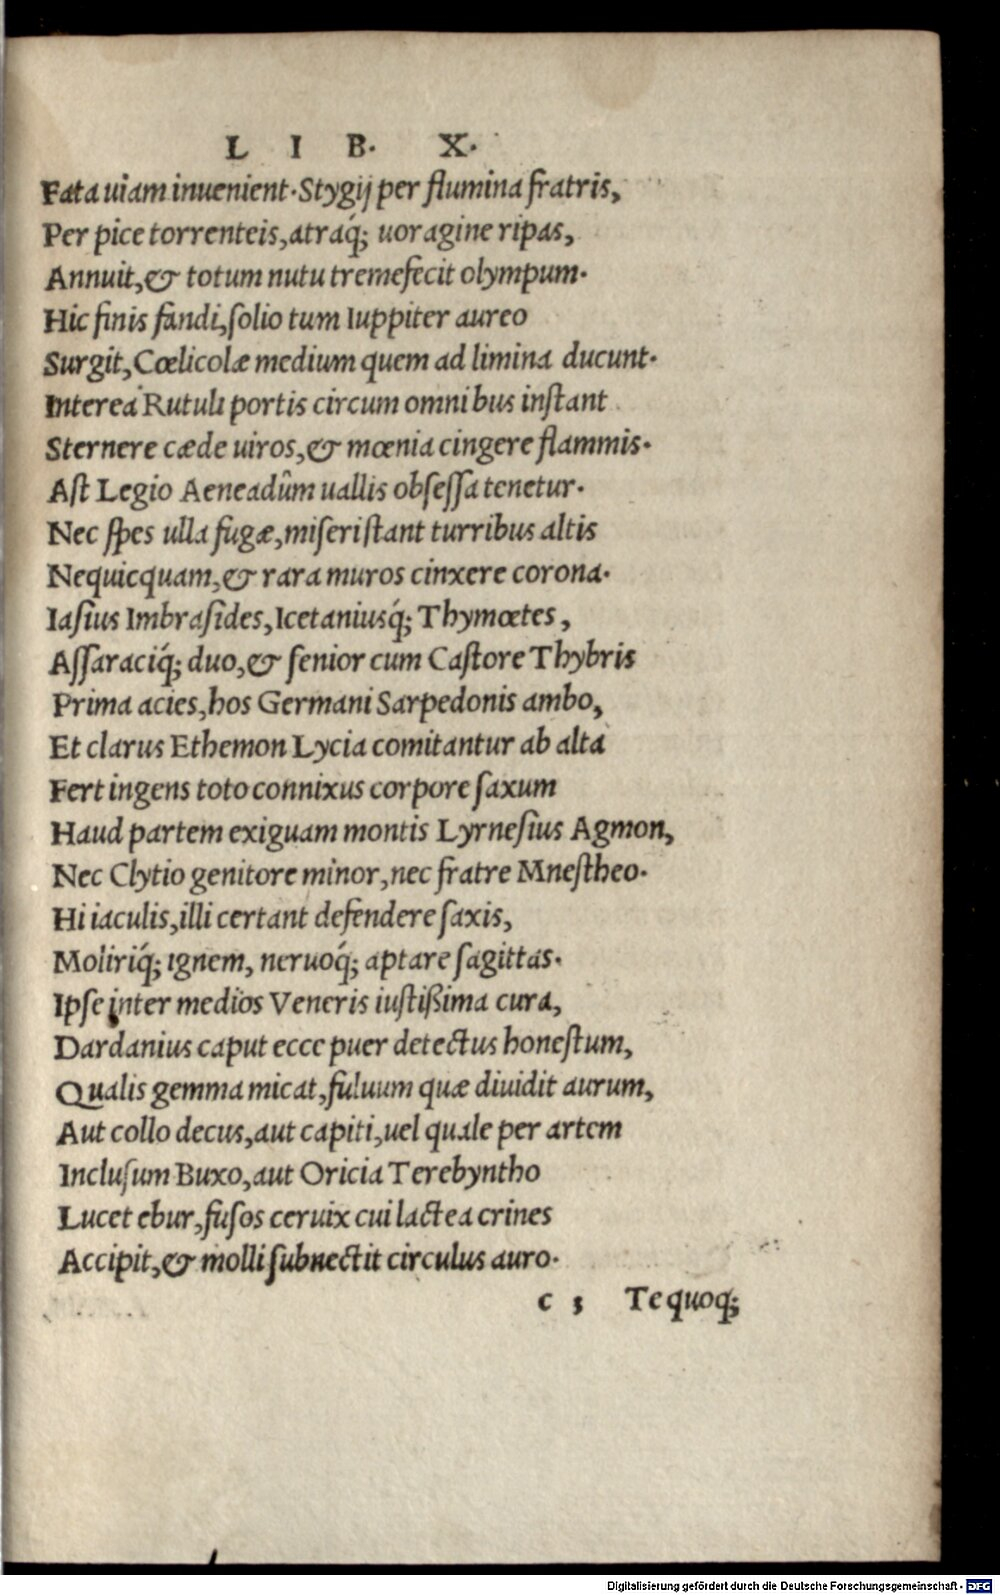 L I B. X.
Fata uiam inuenient. Stygij per flumina fratris,
Per pice torrenteis, atraq́; uoragine ripas,
Annuit, & totum nutu tremefecit olympum.
Hic finis fandi, ſolio tum Iuppiter aureo
Surgit, Cœlicolæ medium quem ad limina ducunt.
Interea Rutuli portis circum omnibus inſtant
Sternere cæde uiros, & mœnia cingere flammis.
Aſt Legio Aeneadûm uallis obſeſſa tenetur.
Nec ſpes ulla fugæ, miſeri ſtant turribus altis
Nequicquam, & rara muros cinxere corona.
Iaſius Imbraſides, Icetaniusq́; Thymœtes,
Aſſaraciq́; duo, & ſenior cum Caſtore Thybris
Prima acies, hos Germani Sarpedonis ambo,
Et clarus Ethemon Lycia comitantur ab alta
Fert ingens toto connixus corpore ſaxum
Haud partem exiguam montis Lyrneſius Agmon,
Nec Clytio genitore minor, nec fratre Mneſtheo.
Hi iaculis, illi certant defendere ſaxis,
Moliriq́; ignem, neruoq́; aptare ſagittas.
Ipſe inter medios Veneris iuſtißima cura,
Dardanius caput ecce puer detectus honeſtum,
Qualis gemma micat, fuluum quæ diuidit aurum,
Aut collo decus, aut capiti, uel quale per artem
Incluſum Buxo, aut Oricia Terebyntho
Lucet ebur, fuſos ceruix cui lactea crines
Accipit, & molli ſubnectit circulus auro.
c 3 Te quoq;
Digitalisierung gefördert durch die Deutsche Forschungsgemeinschaft - DFG